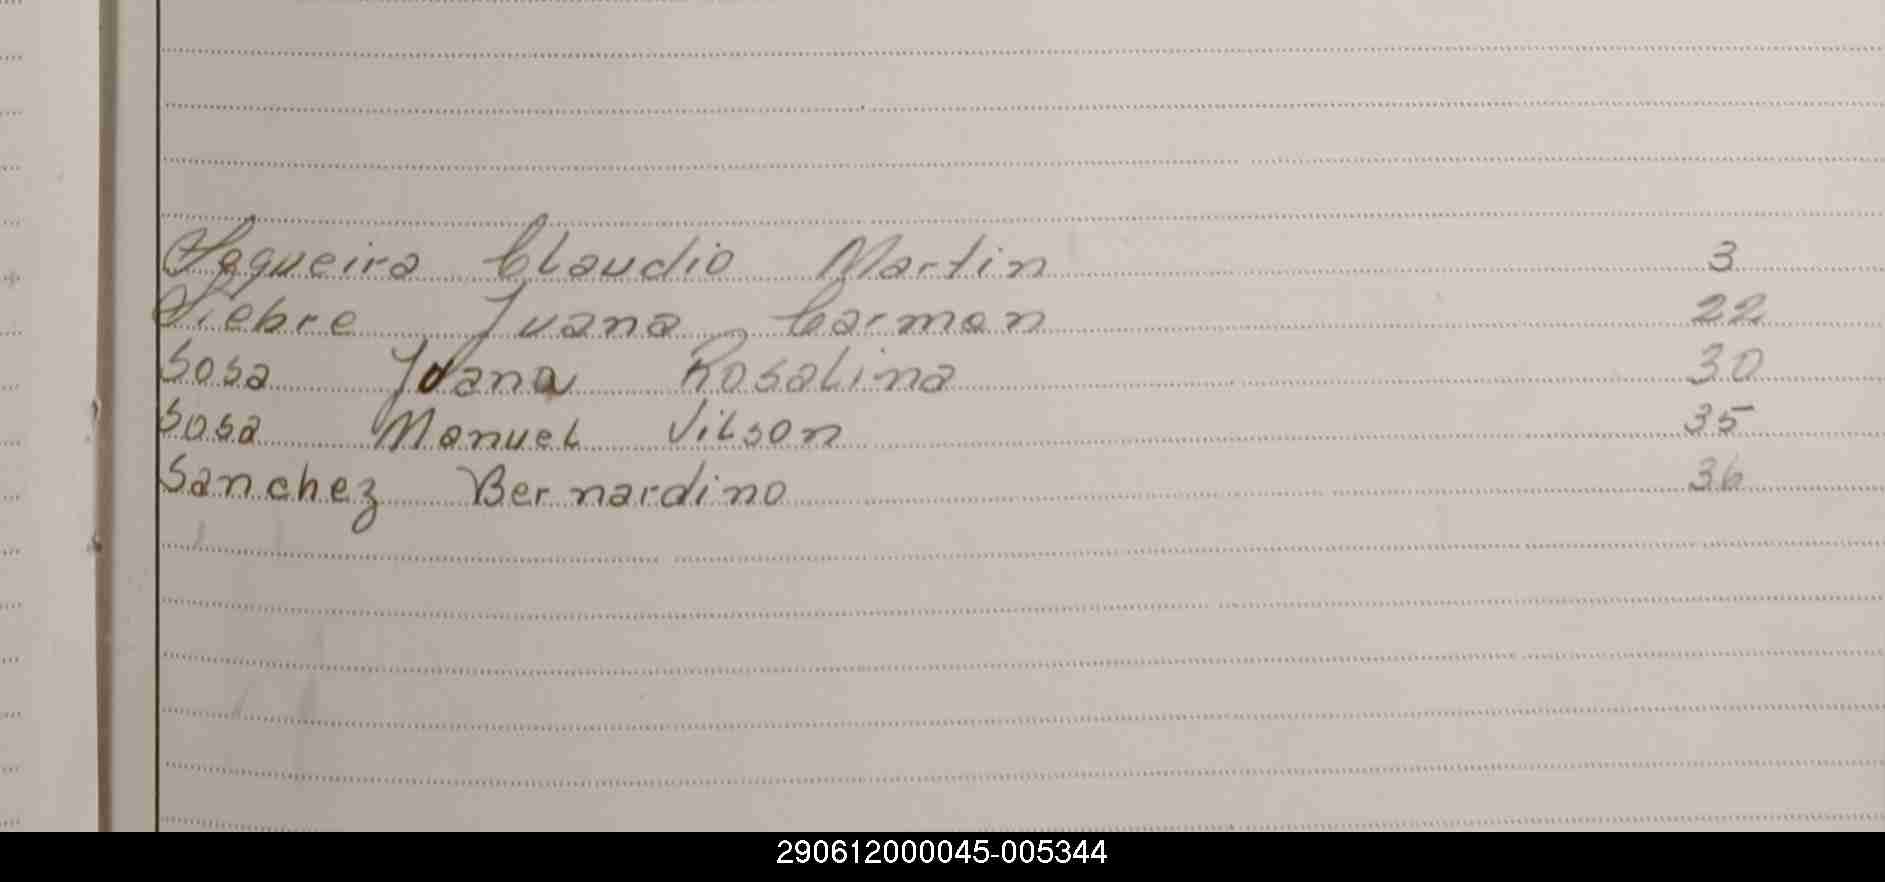 Sequeira Claudio Martin 3
Siebre Juana Carmen 22
Sosa Juana Rosalina 30
Sosa Manuel Vilson 35
Sanchez Bernardino 36
290612000045-005344